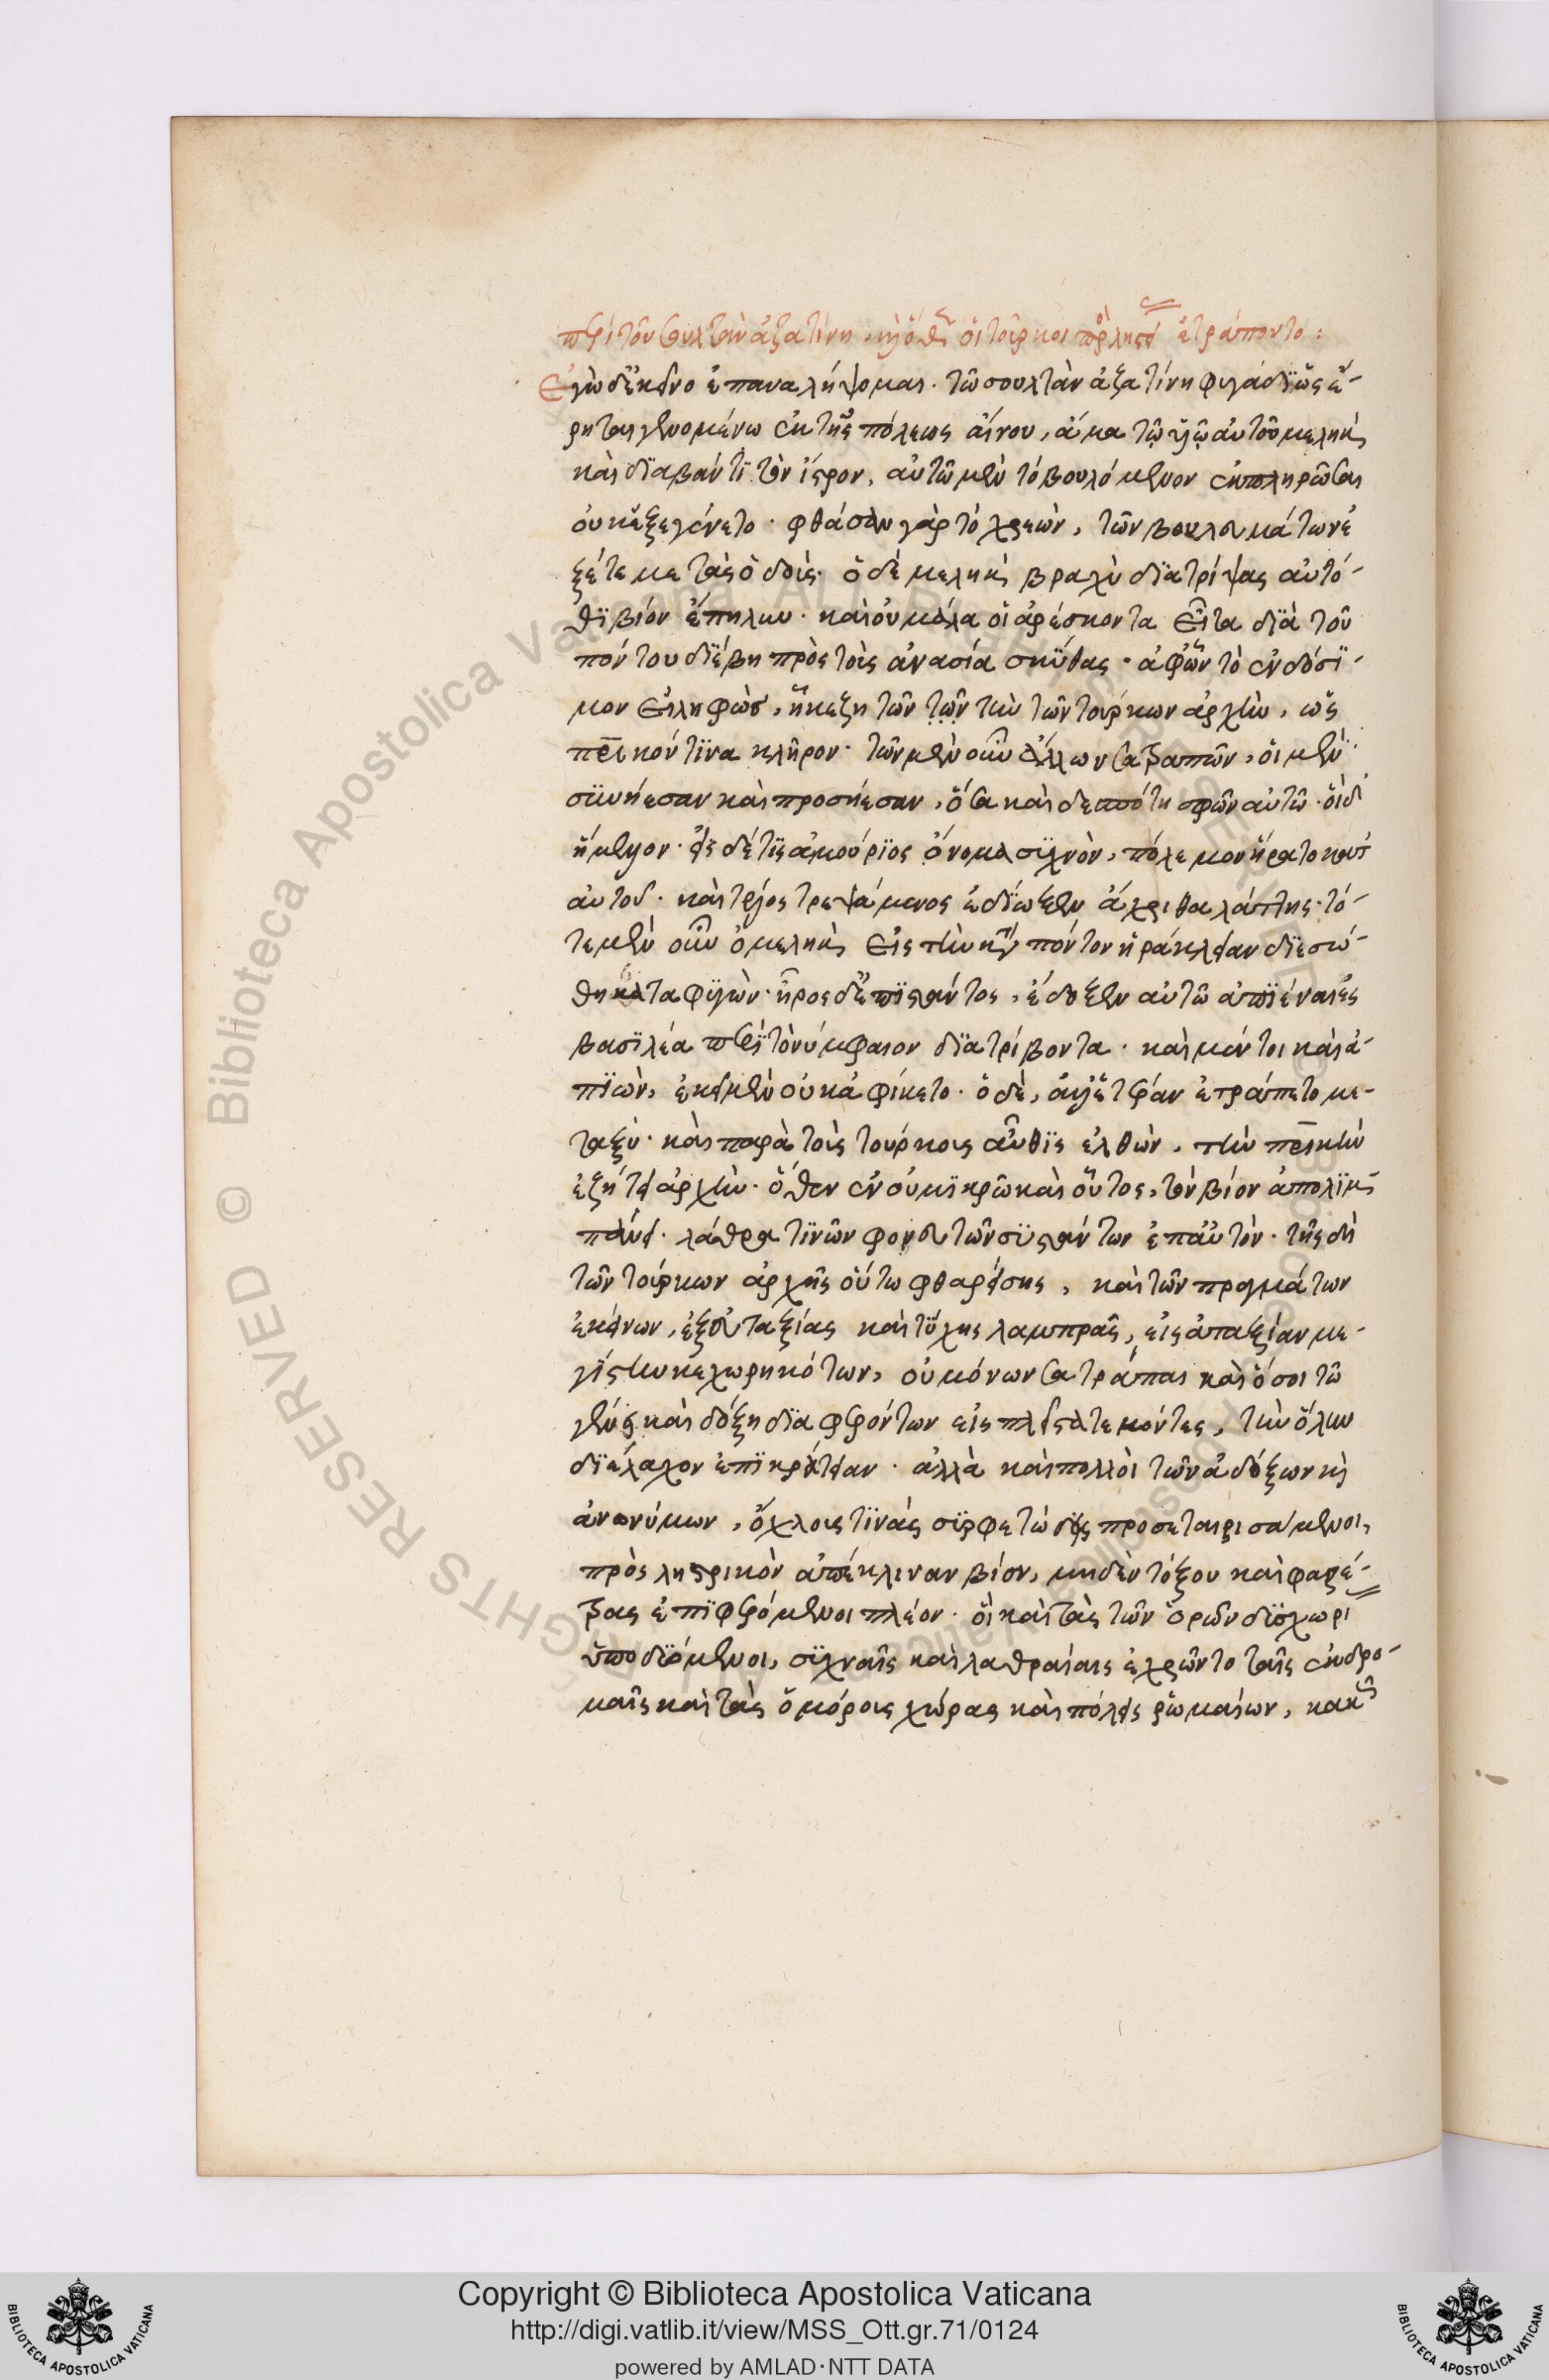 περὶ τοῦ σουλτὰν ἀζατίνη, καὶ ὅθεν οἱ τοῦρκοι πρὸς λῃστείαν ἐτράποντο :
Ἐγὼ δ' ἐκεῖνο ἐπαναλήψομαι. τῶ σουλτὰν ἀζατίνη φυγάδϊ ὡς εἴ-
ρηται γενομένω ἐκ τῆς πόλεως αἴνου, ἅμα τῷ υἱῷ αὐτοῦ μελὴκ
καὶ δϊαβάντϊ τὸν ἴστρον, αὐτῶ μὲν τὸ βουλόμενον ἐκπληρῶσαι
οὐκ ἐξεγένετο. φθάσαν γὰρ τὸ χρεὼν, τῶν βουλευμάτων ἐ
ξέτεμε τὰς ὁδούς. ὁ δὲ μελὴκ βραχὺ δϊατρίψας αὐτό-
θϊ βίον ἔπηλυν. καὶ οὐ μάλα οἱ ἀρέσκοντα εἶτα δϊὰ τοῦ
πόντου δϊέβη πρὸς τοὺς ἀν' ἀσία σκύθας. ἀφ' ὧν τὸ ἐνδόσϊ-
μον εἰληφὼς, ἧκε ζητῶν τῶν τὴν τῶν τούρκων ἀρχὴν, ὡς
πατρικόν τϊνα κλῆρον. τῶν μὲν οὖν ἄλλων σατραπῶν, οἱ μὲν
συνήεσαν καὶ προσήεσαν, ὅσα καὶ δεσπότη σφῶν αὐτῶ. οἱ δ'
ἤμελλον. εἷς δέ τϊς ἀμούρϊος ὄνομα συχνὸν, πόλεμον ἤρατο κατ'
αὐτοῦ. καὶ τέλος τρεψάμενος ἐδϊωξεν ἄχρι θαλάττης. τό-
τε μὲν οὖν ὁ μελὴκ εἰς τὴν κατὰ πόντον ἡράκλειαν δϊεσώ-
θη καταφυγών. ἦρος δ' ἐπϊστάντος, ἔδοξεν αὐτῶ ἀπϊέναι ἐς
βασϊλέα περὶ τὸ νύμφαιον δϊατρίβοντα. καὶ μέντοι καὶ ἀ-
πϊὼν, ἐκεῖ μὲν οὐκ ἀφίκετο. ὁ δὲ, ἄλλ' ἑτέραν ἐτράπετο με-
ταξύ. καὶ παρὰ τοὺς τούρκους αὖθϊς ἐλθὼν, τὴν πατρικὴν
ἐζήτει ἀρχήν. ὅθεν ἐν οὐ μϊκρῶ καὶ οὗτος, τὸν βίον ἀπολϊμ-
πάνει. λάθρα τϊνῶν φονευτῶν συστάντων ἐπ' αὐτόν. τῆς δὴ
τῶν τούρκων ἀρχῆς οὕτω φθαρείσης, καὶ τῶν πραγμάτων
ἐκείνων, ἐξ εὐταξίας καὶ τύχης λαμπρᾶς, εἰς ἀταξίαν με-
γίστην κεχωρηκότων, οὐ μόνων σατράπαι καὶ ὅσοι τῶ
γένει καὶ δόξη δϊαφερόντων εἰς πλεῖστα τεμόντες, τὴν ὅλην
δϊέλαχον ἐπϊκράτειαν. ἀλλὰ καὶ πολλοὶ τῶν ἀδόξων καὶ
ἀνωνύμων, ὄχλους τϊνὰς συρφετώδεις προσεταιρισάμενοι,
πρὸς λῃστρικὸν ἀπέκλιναν βίον, μηδὲν τόξου καὶ φαρέ-
τρας ἐπϊφερόμενοι πλέον. οἳ καὶ τὰς τῶν ὀρῶν δϋσχωρί
ὑποδϋόμενοι, συχναῖς καὶ λαθραίαις ἐχρῶντο ταῖς ἐκδρο-
μαῖς καὶ τὰς ὁμόρους χώρας καὶ πόλεις ῥωμαίων, κακῶς
Copyright © Biblioteca Apostolica Vaticana
http://digi.vatlib.it/view/MSS_Ott.gr.71/0124
powered by AMLAD·NTT DATA